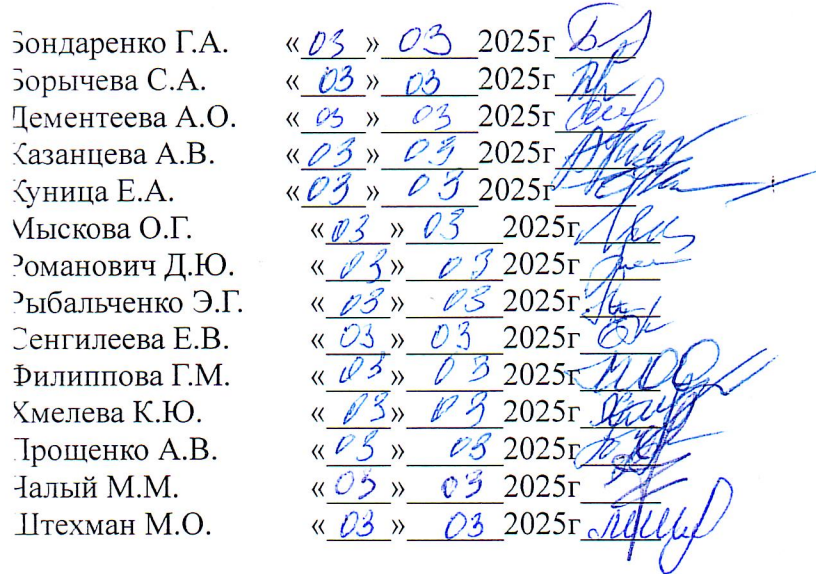 Бондаренко Г.А. « 03 » 03 2025г
Борычева С.А. « 03 » 03 2025г
Дементеева А.О. « 03 » 03 2025г
Казанцева А.В. « 03 » 03 2025г
Куница Е.А. « 03 » 03 2025г
Мыскова О.Г. « 03 » 03 2025г
Романович Д.Ю. « 03 » 03 2025г
Рыбальченко Э.Г. « 03 » 03 2025г.
Сенгилеева Е.В. « 03 » 03 2025г
Филиппова Г.М. « 03 » 03 2025г
Хмелева К.Ю. « 03 » 03 2025г
Прощенко А.В. « 03 » 03 2025г
Чалый М.М. « 03 » 03 2025г
Штехман М.О. « 03 » 03 2025г